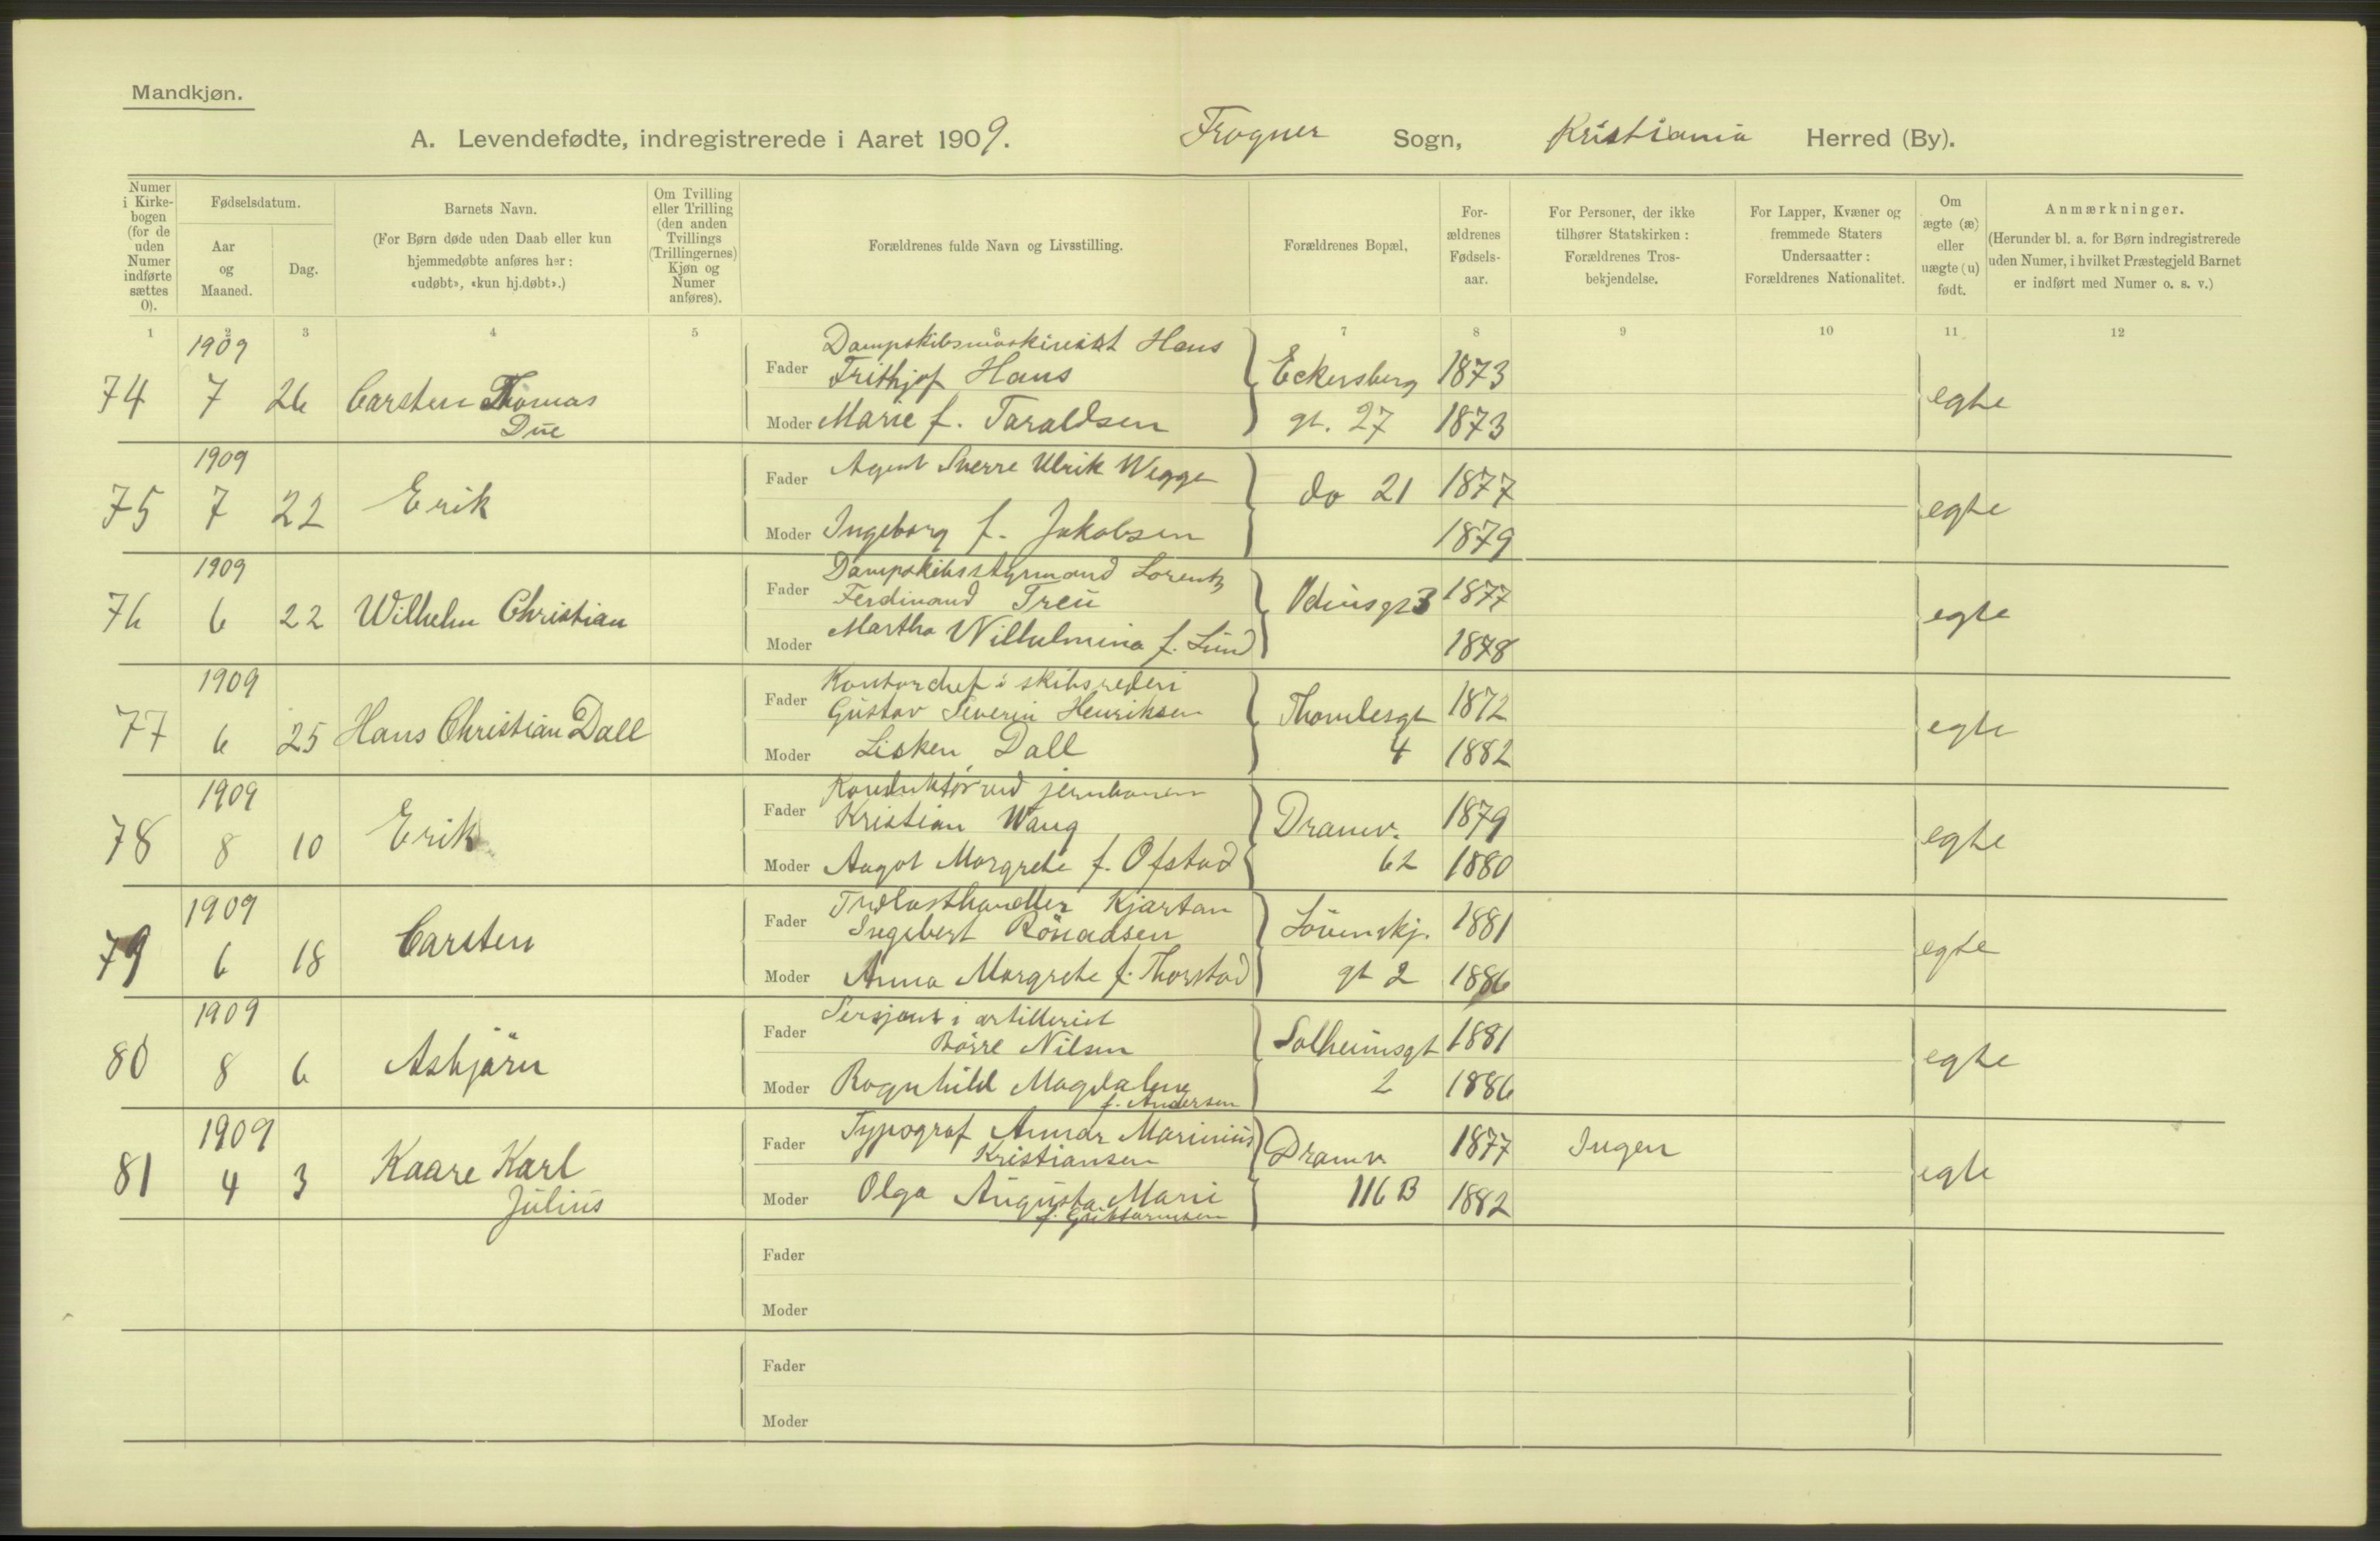 Mandkjøn.
A. Levendefødte, indregistrerede i Aaret 1909. Frogner Sogn, Kristiania Herred (By).
Numer i Kirkebogen (for de uden Numer indførte sættes 0).
Fødselsdatum.
Aar og Maaned.
Dag.
Barnets Navn.
(For Børn døde uden Daab eller kun hjemmedøbte anføres her: «udøbt», «kun hj.døbt».)
Om Tvilling eller Trilling (den anden Tvillings (Trillingernes) Kjøn og Numer anføres).
Forældrenes fulde Navn og Livsstilling.
Forældrenes Bopæl.
Forældrenes Fødselsaar.
For Personer, der ikke tilhører Statskirken: Forældrenes Trosbekjendelse.
For Lapper, Kvæner og fremmede Staters Undersaatter: Forældrenes Nationalitet.
Om ægte (æ) eller uægte (u) født.
Anmærkninger.
(Herunder bl. a. for Børn indregistrerede uden Numer, i hvilket Præstegjeld Barnet er indført med Numer o. s. v.)
1 2 3 4 5 6 7 8 9 10 11 12
1909
74 7 26 Carsten Thomas
Due
Fader Dampskibsmaskinist Hans
Frithjof Hans Eckersberg 1873
Moder Marie f. Taraldsen gt. 27 1873
egte
1909
75 7 22 Erik
Fader Agent Sverre Ulrik Wegge do 21 1877
Moder Ingeborg f. Jakobsen 1879
egte
1909
76 6 22 Wilhelm Christian
Fader Dampskibsstyrmand Lorentz
Ferdinand Treu Odinsgt 3 1877
Moder Martha Wilhelmina f. Lund 1878
egte
1909
77 6 25 Hans Christian Dall
Fader Kontorchef i skibsrederi
Gustav Severin Henriksen Thomlesgt 1872
Moder Lisken Dall 4 1882
egte
1909
78 8 10 Erik
Fader Konduktør ved jernbanen
Kristian Wang Dramv. 1879
Moder Aagot Margrete f. Ofstad 62 1880
egte
1909
79 6 18 Carsten
Fader Trælasthandler Kjartan
Ingebert Lövenskj. 1881
Moder Anna Margrete f. Thorstad gt 2 1886
egte
1909
80 8 6 Asbjörn
Fader Sersjant i artilleriet
Börre Nilsen Solheimsgt 1881
Moder Ragnhild Magdalene 2 1886
f. Andersen
egte
1909
81 4 3 Kaare Karl
Julius
Fader Typograf Marinius
Kristiansen Dramv. 1877 Ingen
Moder Olga Augusta Marie 116 B 1882
egte
Fader
Moder
Fader
Moder